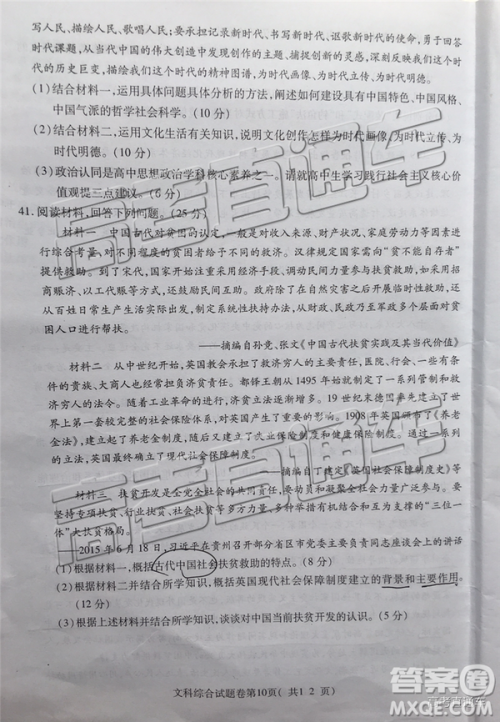 写人民、描绘人民、歌唱人民；要承担记录新时代、书写新时代、讴歌新时代的使命，勇于回答
时代课题，从当代中国的伟大创造中发现创作的主题、捕捉创新的灵感，深刻反映我们这个时
代的历史巨变，描绘我们这个时代的精神图谱，为时代画像、为时代立传、为时代明德。
(1)结合材料一，运用具体问题具体分析的方法，阐述如何建设具有中国特色、中国风格、
中国气派的哲学社会科学。(10分)
(2)结合材料二，运用文化生活有关知识，说明文化创作怎样为时代画像、为时代立传、为
时代明德。(10分)
(3)政治认同是高中思想政治学科核心素养之一。请就高中生学习践行社会主义核心价
值观提三点建议。(6分)
41.阅读材料，回答下列问题。(25分)
材料一 中国古代对贫困的认定，一般是对以收入来源、财产状况、劳动能力等方面因素进
行综合考量，对不同原因的贫困者给予不同的救济。汉律规定国家需向“贫不能自存者”
提供救助。到了宋代，国家更加注重采用经济手段，调动民间力量参与扶贫救助，使用如招
商赈济、以工代赈等方式，鼓励民间互助。政府除了在自然灾害之后开展临时性救助，还从
百姓日常生产生活出发，制定系统性扶持办法，从财政、民政乃至军政多个层面对贫
困人口进行帮扶。
——摘编自孙竞、张文《中国古代扶贫实践及其当代价值》
材料二 从中世纪开始，英国教会承担了救济穷人的主要责任，医院、行会，一些富有同情心
的贵族、大商人也经常成为救济穷人的主体。都铎王朝从1495年计划了一系列管制和救
济穷人的法令。随着工业革命的进行，济贫立法逐渐增多。19世纪末德国率先建立了世
界上第一套较完整的社会保险体系，对英国产生了重要的影响。1908年英国颁布了《养老
金法》，建立起养老金制度，随后又建立了失业保险和健康保险制度。通过一系列
的立法，英国最终确立了现代社会保障制度。
——摘编自丁建定《英国社会保障制度史》等
材料三 扶贫开发是全党全社会的共同责任，要动员和凝聚全社会力量广泛参与。要
坚持专项扶贫、行业扶贫、社会扶贫等多方力量、多种举措有机结合和互为支撑的“三位一
体”大扶贫格局。
——2015年6月18日，习近平在贵州召开部分省区市党委主要负责同志座谈会上的讲话
(1)根据材料一，概括古代中国社会扶贫救助的特点。(8分)
(2)根据材料二并结合所学知识，概括英国现代社会保障制度建立的背景和主要作用。
(12分)
(3)根据上述材料并结合所学知识，谈谈对中国当前扶贫开发的认识。(5分)
文科综合试题卷第10页(共12页)
高考直通车
高考直通车
答案圈
MXQE.COM